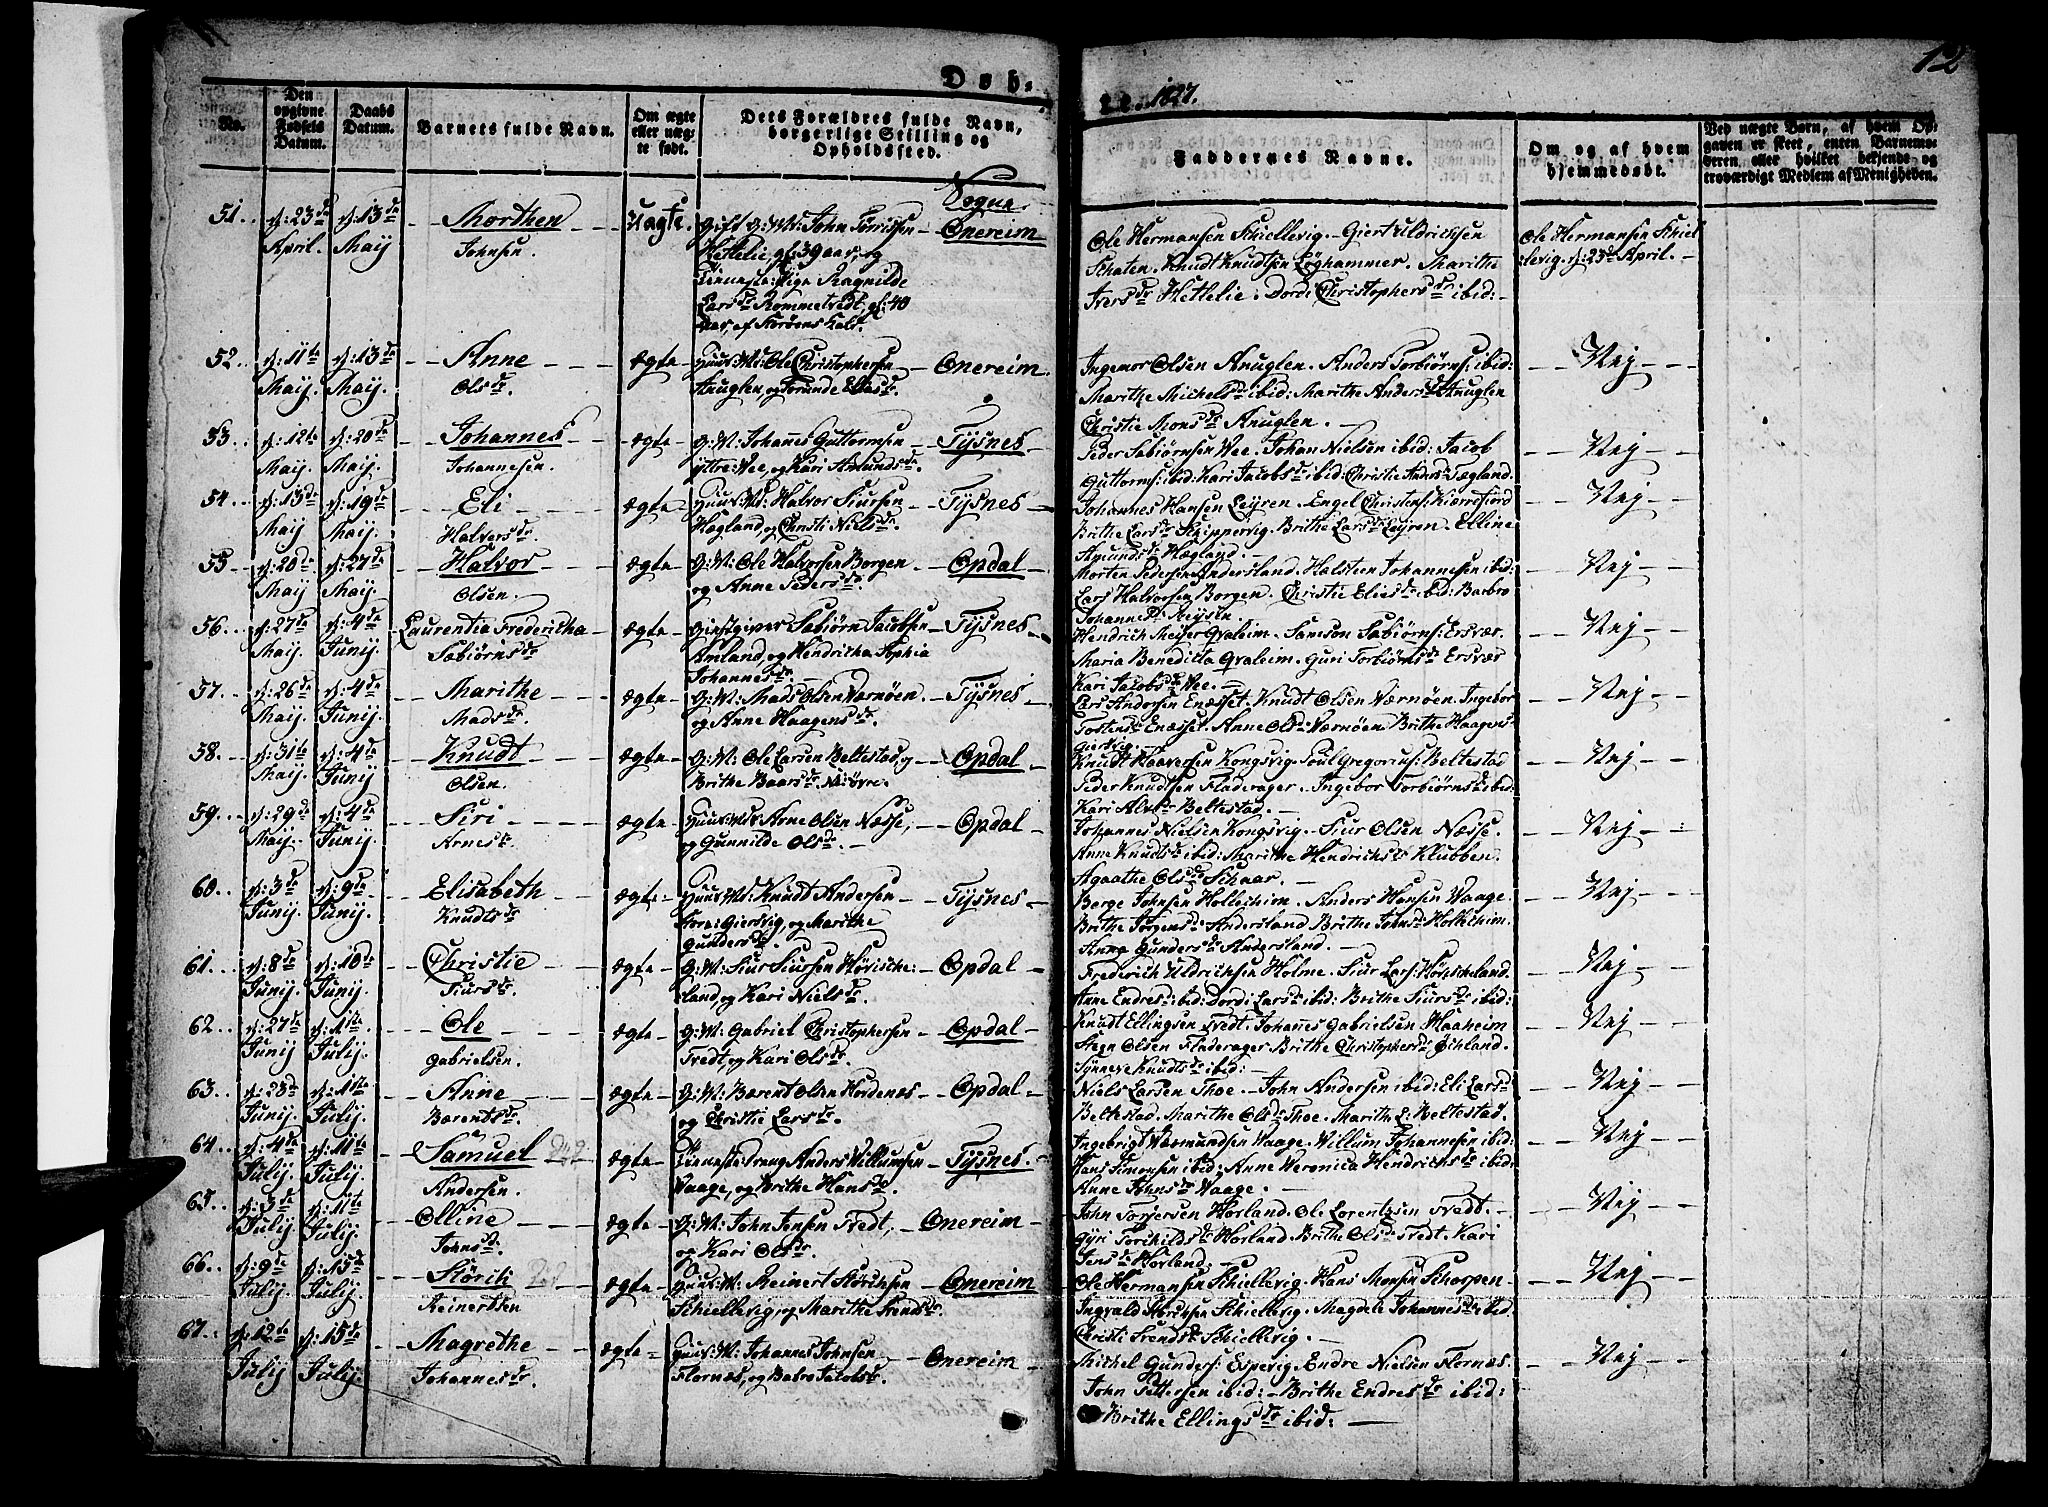 12
Døb-
te. 1827.
No.
Den opgivne Fødsels Datum.
Daabs Datum.
Barnets fulde Navn.
Om ægte eller uægte født.
Dets Forældres fulde Navn, borgerlige Stilling og Opholdssted.
Faddernes Navne.
Om og af hvem hjemmedøbt.
Ved uægte Børn, af hvem Opgaven er skeet, enten Barnemoderen, eller hvilket bekjendt og troværdigt Medlem af Menigheden.
Sogne.
51. d: 23de April. d: 13de Maij Morthen Johnsen. Uægte.
Gift G:M: John
Hetlelie, gl: 39 aar, og
Tieneste-Pige Ragnilde
Larsdr Rommetvedt, gl: 40
Onereim
Ole Hermansen Schiellevig. Giert Uldricksen
Schaten. Knudt Knudtsen Løghammer. Marithe
Iversdr Hetlelie. Dordi Christophersdr ibid:
Ole Hermansen Schiel-
levig. d: 23de April.
52. d: 11te Maij. d: 13de Maij. Anne Olsdr. ægte
Huus-M: Ole Christophersen
Anuglen, og
Onereim.
Ingemor Olsen Anuglen. Anders Torbiørns: ibid:
Marithe Michelsdr ibid: Marithe Andersdr Anuglen
Christie Monsdr Anuglen.
Nej
53. d: 12te Maij. d: 20de Maij. Johannes Johannesen. ægte
G:M: Johannes Guttormsen
Yttre-Vee, og Kari Amundsdr.
Tysnes
Peder Sæbiørnsen Vee. Johan Nielsen ibid: Jacob
Guttorms: ibid: Kari Jacobsdr ibid: Christie
Nej
54. d: 13de Maij d: 19de Maij. Eli Halversdr ægte
Huus-Md: Halvor Siursen
Hægland, og Christi Nielsdr.
Tysnes
Johannes Hansen Leyren. Engel Christens: Kierrefiord
Brithe Larsdr Schippervig. Brithe Larsdr Leyren. Elline
Amundsdr Hægland.
Nej
55 d: 20de Maij d: 27de Maij. Halvor Olsen. ægte
G:M: Ole Halvorsen Borgen
og Anne Pedersdr.
Opdal
Morten Pedersen Andersland. Halsteen Johannesen ibid:
Lars Halvorsen Borgen. Christie Eliesdr ibid: Barbro
Johannesdr
Nej
56. d: 27de Maij. d: 4de Junij. Laurentia Fredericha Sæbiørnsdr ægte
Giestgiver Sæbiørn Jacobsen
Amland, og Hendricha Sophia
Johannesdr.
Tysnes
Hendrich Meyer Qvaleim. Samson Sæbiørns: Ersvær
Maria Benedicta Qvaleim. Guri Torbiørnsdr Ersvær
Kari Jacobsdr Vee.
Nej
57. d: 26de Maij. d: 4de Junij. Marithe Madsdr. ægte
G:M: Mads Olsen Værnøen
og Anne Haagensdr.
Tysnes
Lars Andersen Enæsset. Knudt Olsen Værnøen. Ingebor
Tostens: Enæsset. Anne Olsdr Værnøen. Brithe Haagens
Giersvig.
Nej
58. d: 31te Maij. d: 4de Junij Knudt Olsen. ægte
G:M: Ole Larsen Beltestad, og
Brithe Baarsdr
Opdal
Knudt Haaversen Kongsvig. Poul Gregorius: Beltestad
Peder Knudtsen Fladerager. Ingebor Torbiørnsdr ibid:
Kari Beltestad.
Nej
59. d: 29de Maij. d: 4de Junij. Siri Arnesdr. ægte
Huus-Md Arne Olsen Næsse,
og Gunnilde Olsdr.
Opdal
Johannes Nielsen Kongsvig. Siur Olsen Næsse.
Anne Knudtsdr ibid: Marithe Hendrichsdr Klubben.
Agaathe Olsdr Schaar.
Nej
60. d: 3de Junij. d: 9de Junij. Elisabeth Knudtsdr ægte
Huus-Md: Knudt Andersen
Store-Giersvig, og Marithe
Gundersdr.
Tysnes
Berge Johnsen Holleheim. Anders Hansen Vaage.
Brithe Jørgensdr Andersland. Brithe Johnsdr Holleheim.
Anne Gundersdr Andersland.
Nej
61. d: 8de Junij. d: 10de Junij. Christie Siursdr. ægte
G:M: Siur Siursen Hövische-
land, og Kari Nielsdr.
Opdal
Frederich Uldrichsen Holme. Siur Lars:
Anne Endresdr ibid: Dordi Larsdr ibid: Brithe Siursdr ibid:
Nej
62. d: 27de Junij d: 1ste Julij. Ole Gabrielsen. ægte
G:M: Gabriel Christophersen
Tvedt, og Kari Olsdr
Opdal
Knudt Ellingsen Tvedt. Johannes Gabrielsen Haaheim
Steen Olsen Fladerager. Brithe Christophersdr
Synneve Knudtsdr ibid:
Nej
63. d: 23de Junij. d: 1ste Julij. Anne Bærentsdr. ægte
G:M: Bærent Olsen Hordenes
og Christie Larsdr
Opdal
Niels Larsen Thoe. John Andersen ibid: Eli Larsdr
Beltestad. Marithe Olsdr Thoe. Marithe L: Beltestad.
Nej
64. d: 4de Julij. d: 11te Julij. Samuel Andersen. ægte
Tieneste-Dreng Anders Villumsen
Vaage, og Brithe Hansdr
Tysnes.
Ingebrigt Værmundsen Vaage. Villum Johannesen ibid:
Hans Simonsen ibid: Anne Veronica Hendrichsdr ibid:
Anne Johnsdr Vaage.
Nej
65. d: 3de Julij d: 11te Julij. Olline Johnsdr. ægte
G:M: John Jensen Tvedt,
og Kari Olsdr.
Onereim
John Torjersen Hovland. Ole Lorentzsen Tvedt.
Gyri Torchildsdr Hovland. Brithe Olsdr Tvedt. Kari
Jensdr Hovland.
Nej
66. d: 9de Julij. d: 15de Julij. Störch Reinertsen ægte
Huus-M: Reinert Störchsen
Schiellevig, og Marithe Svendsdr.
Onereim
Ole Hermansen Schiellevig. Hans Monsen Schorpen
Ingvald Störchsen Schiellevig. Magdele Johannesdr ibid.
Christi Svendsdr Schiellevig.
Nej
67. d: 12te Julij d: 15de Julij. Magrethe Johannesdr. ægte
Huus-M: Johannes Johnsen
Flornæs, og Babro Jacobsdr.
Onereim
Michel Gunders: Espevig. Endre Nielsen Flornæs.
John Pettersen ibid: Brithe Endresdr ibid:
Brithe Ellingsdr ibid:
Nej